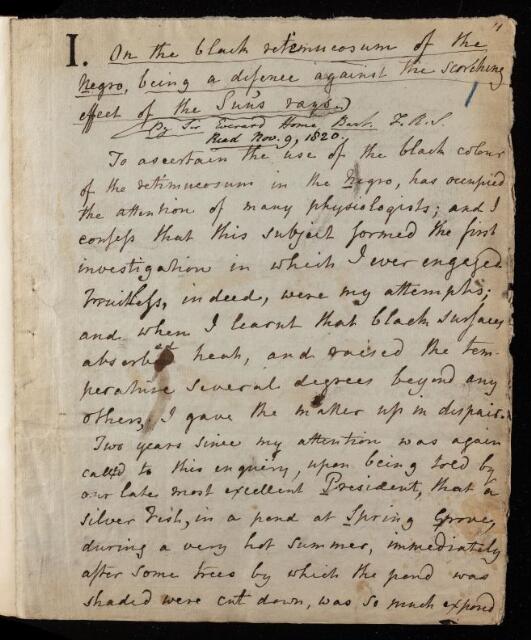 I. On the black retemucosum of the
Negro, being a defence against the scorching
effect of the Sun's rays.
By Sir Everard Home Bart. F.R.S.
Read Nov. 9, 1820.
To ascertain the use of the black colour
of the retemucosum in the Negro, has occupied
the attention of many physiologists; and I
confess that this subject formed the first
investigation in which I ever engaged.
Fruitless, indeed, were my attempts;
and when I learnt that black surfaces
absorbed heat, and raised the tem-
perature several degrees beyond any
others, I gave the matter up in despair.
Two years since my attention was again
called to this enquiry, upon being told by
our late most excellent President, that a
silver Fish, in a pond at Spring Grove,
during a very hot summer, immediately
after some trees by which the pond was
shaded were cut down, was so much exposed